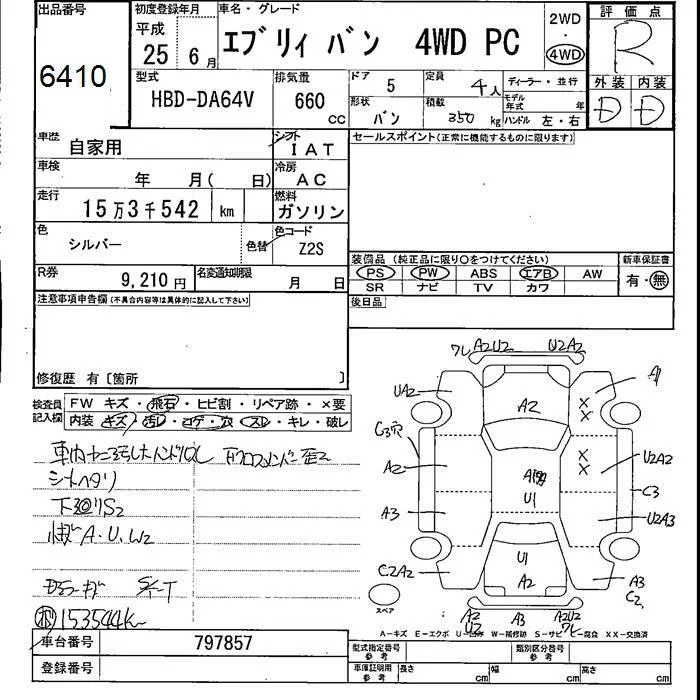 出品番号
6410
初度登録年月
平成
25年 6月
車名・グレード
エブリィ バン 4WD PC
2WD
・
4WD
評価点
R
外装 内装
D D
型式
HBD-DA64V
排気量
660
CC
ドア 5
定員 4人
ディーラー・並行
形状 バン
積載 350 kg
モデル年式 年
ハンドル 左・右
車歴 自家用
シフト
IAT
車検
年 月( 日)
冷房
AC
走行
15万3千542 km
燃料
ガソリン
色
シルバー
色替
色コード
Z2S
R券 9,210円
名変通知期限 月 日
セールスポイント(正常に機能するものに限ります)
装備品(純正品に限り○をつけてください)
PS PW ABS エアB AW
SR ナビ TV カワ
新車保証書
有・無
後日品
注意事項申告欄(不具合内容等は具体的に記入して下さい)
修復歴 有〔箇所 〕
検査員記入欄
FW キズ・飛石・ヒビ割・リペア跡・×要
内装 キズ・汚レ・コゲ・穴・スレ・キレ・破レ
シートヘタリ
下廻りS2
A.U.W2
153544K
ワレ A2U2 U2A2
UA2 A1
A2
C3穴
A2 U2A2
U1 C3
A3 U2A3
U1
C2A2 A2 A3
C2
スペア
A2 U2 A3 A2U2
A-キズ E-エクボ U-凹み W-補修跡 S-サビ C-腐食 XX-交換済
車台番号 797857
登録番号
型式指定番号 参考
類別区分番号 参考
車庫証明用 参考 長さ cm 幅 cm 高さ cm